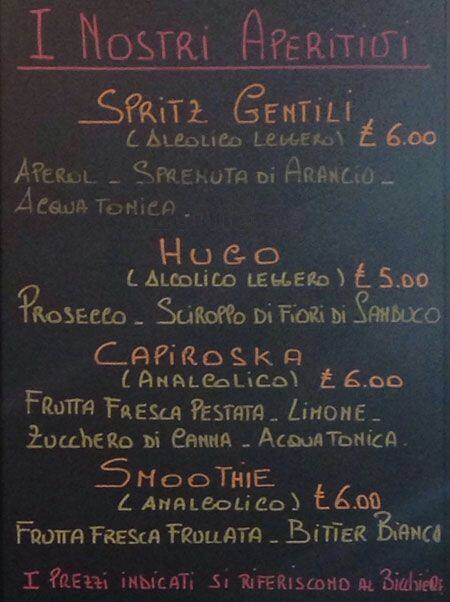 I NOSTRI APERITIVI
SPRITZ GENTILI
(ALCOLICO LEGGERO) £ 6.00
APEROL - SPREMUTA DI ARANCIO -
ACQUA TONICA.
HUGO
(ALCOLICO LEGGERO) £ 5.00
PROSECCO - SCIROPPO DI FIORI DI SANBUCO
CAPIROSKA
(ANALCOLICO) £ 6.00
FRUTTA FRESCA PESTATA - LIMONE -
ZUCCHERO DI CANNA - ACQUA TONICA.
SMOOTHIE
(ANALCOLICO) £ 6.00
FRUTTA FRESCA FRULLATA - BITTER BIANCO
I PREZZI INDICATI SI RIFERISCONO AL BICCHIERE